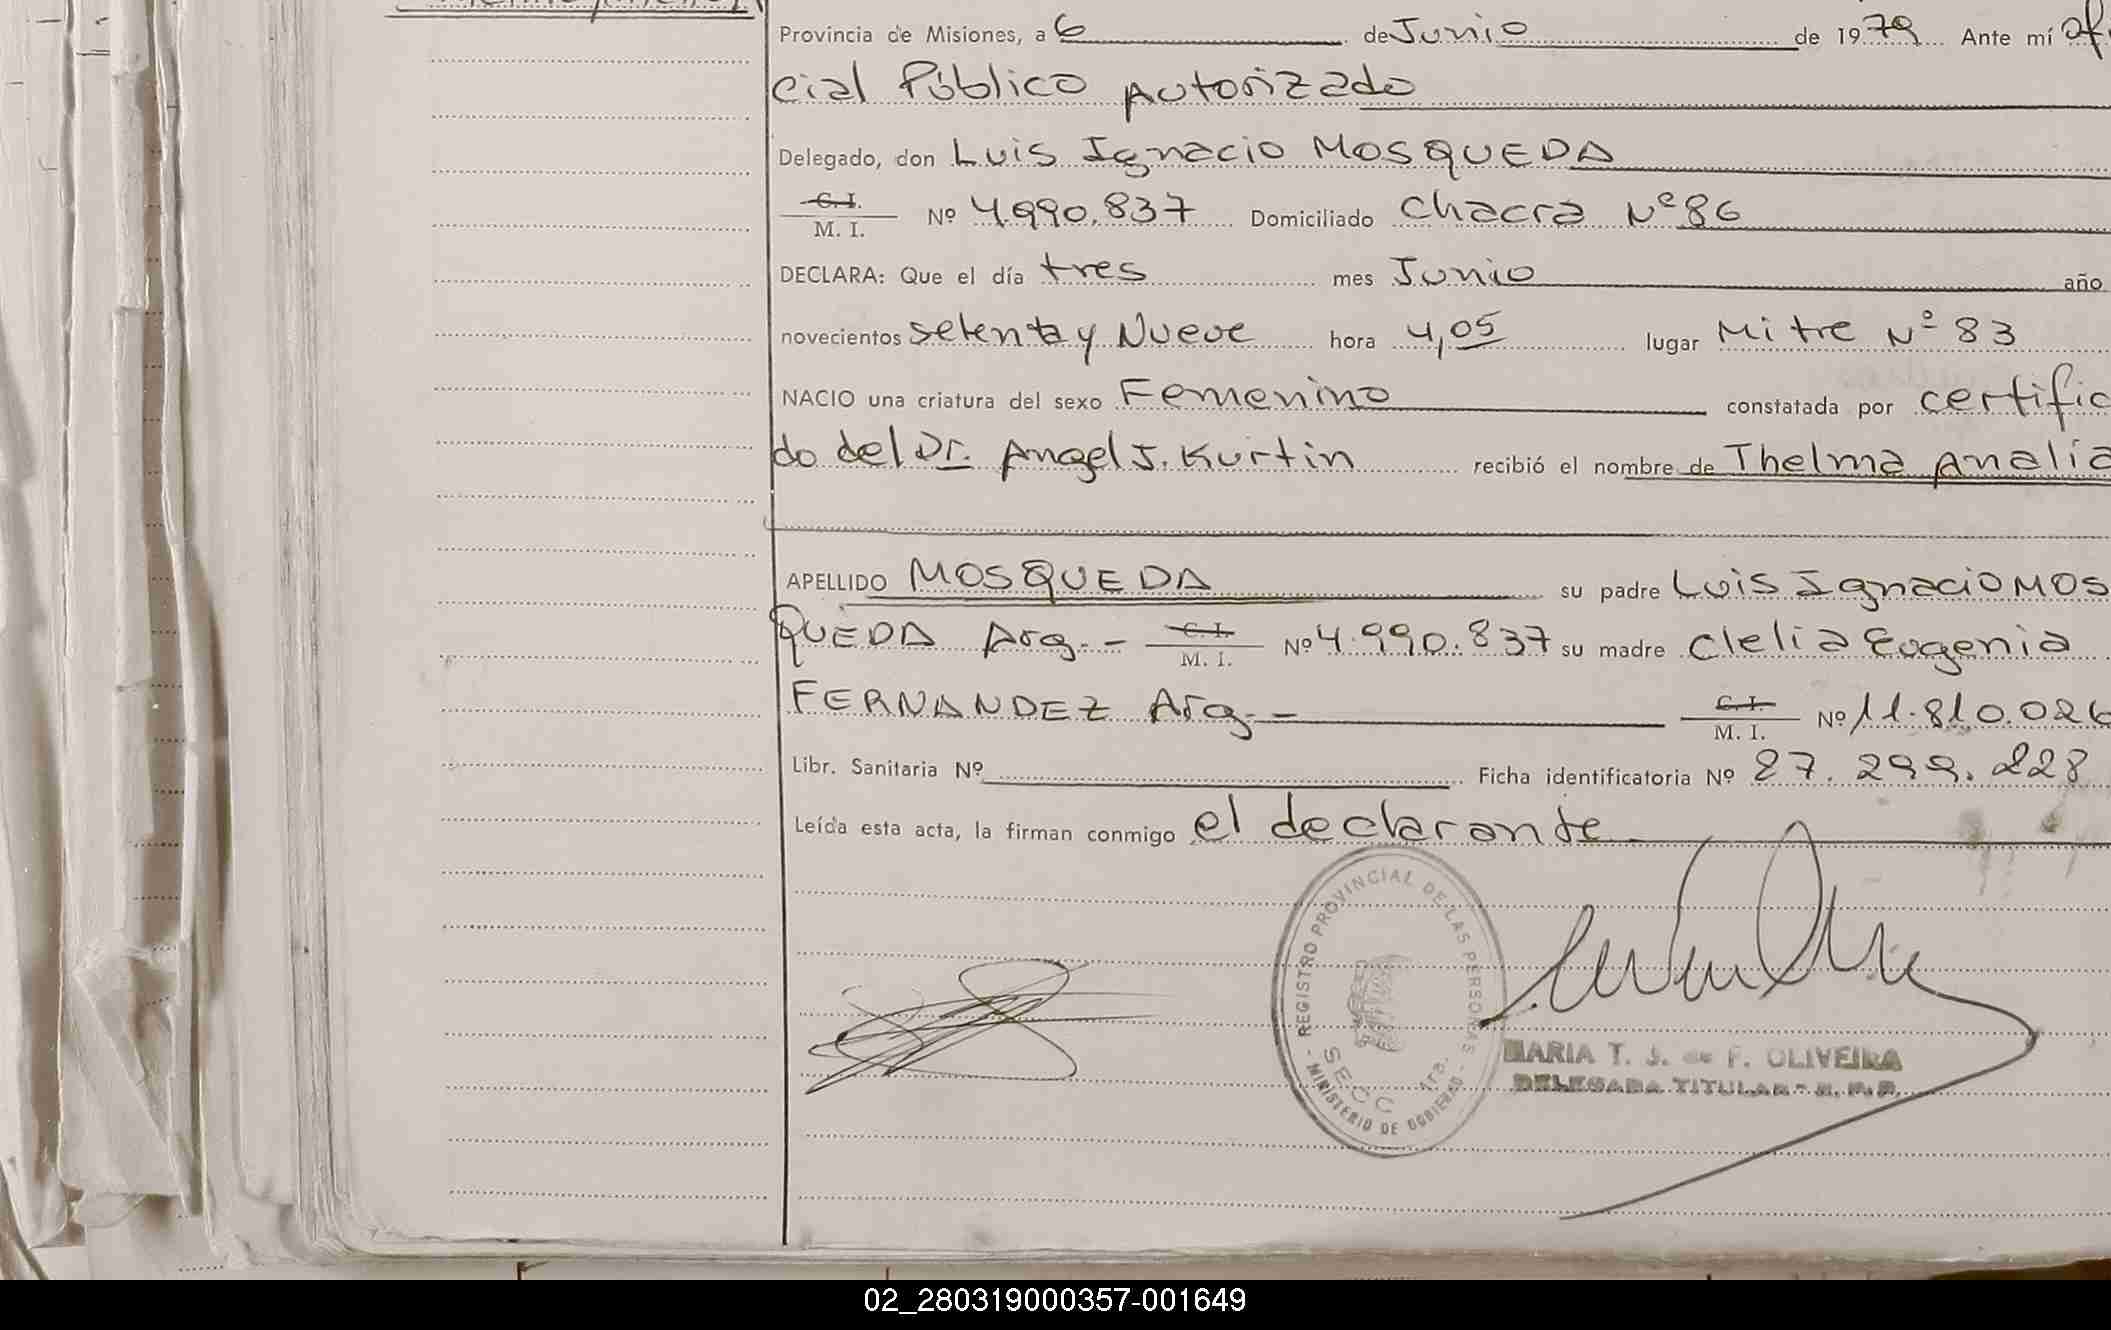 Provincia de Misiones, a 6 de Junio de 1979 Ante mí ofi
cial Público Autorizado
Delegado, don Luis Ignacio MOSQUEDA
C. I.
M. I. Nº 4.990.837 Domiciliado Chacra Nº 86
DECLARA: Que el día tres mes Junio año
novecientos setenta y Nueve hora 4,05 lugar Mitre Nº 83
NACIO una criatura del sexo Femenino constatada por certific
do del Dr. Angel J. Kurtin recibió el nombre de Thelma Analía
APELLIDO MOSQUEDA su padre Luis Ignacio MOS
QUEDA Arg.- C. I. M. I. Nº 4.990.837 su madre Clelia Eugenia
FERNANDEZ Arg.- C. I. M. I. Nº 11.810.026
Libr. Sanitaria Nº Ficha identificatoria Nº 27.299.228
Leída esta acta, la firman conmigo el declarante
- REGISTRO PROVINCIAL DE LAS PERSONAS -
SECC 1ra.
MINISTERIO DE GOBIERNO
MARIA T. J. de F. OLIVEIRA
DELEGADA TITULAR - R. P. P.
02_280319000357-001649